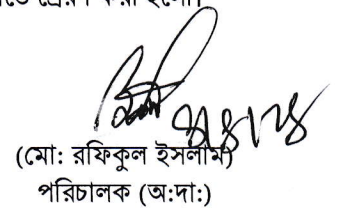 প্রেরণ করা হলো।
(মো: রফিকুল ইসলাম)
পরিচালক (অ:দা:)